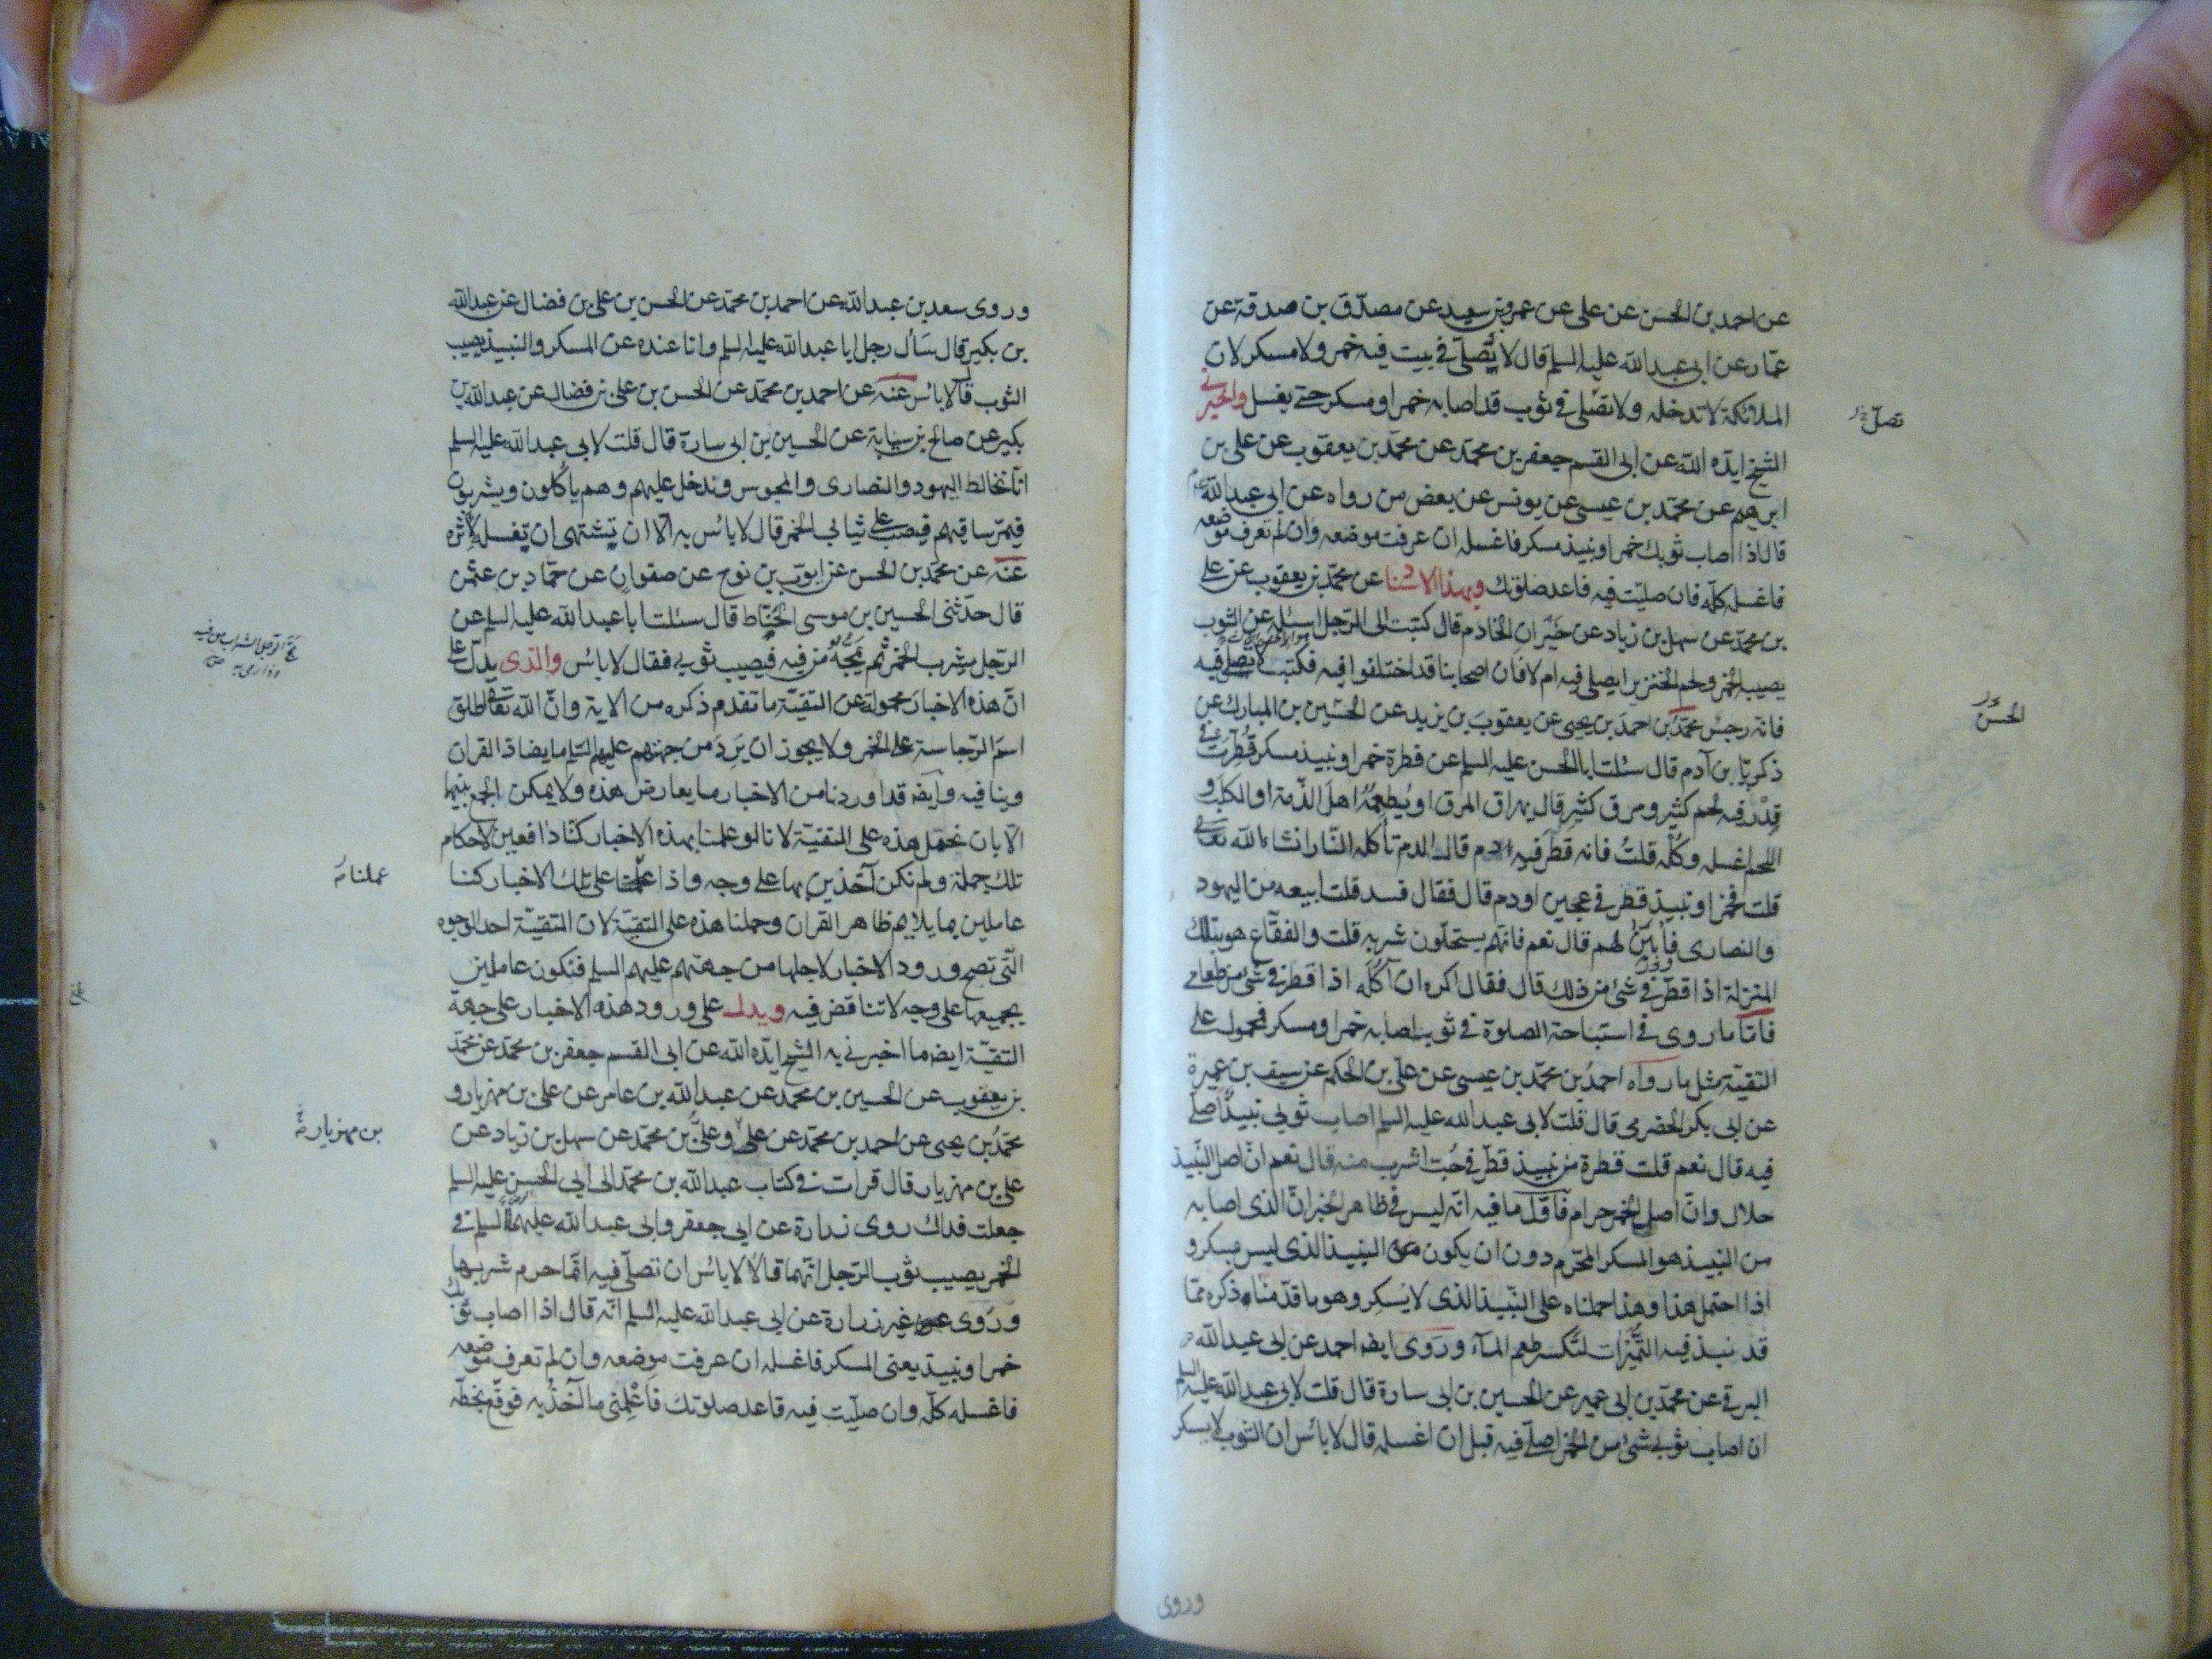 عن احمد بن الحسن عن على عن عمرو بن سعيد عن مصدّق بن صدقة عن
عمّار عن ابى عبد الله عليه السلم قال لا تُصلّى فى بيت فيه خمر ولا مسكر لان
الملائكة لا تدخله ولا تصلى فى ثوب قد اصابه خمر او مسكر حتى يغسل واخبرنى
تصلّ
الشيخ ايدّه الله عن ابى القسم جعفر بن محمّد عن محمّد بن يعقوب عن على بن
ابرهيم عن محمّد بن عيسى عن يونس عن بعض من رواه عن ابى عبد الله
قال اذا اصاب ثوبك خمر او نبيذ مسكر فاغسله ان عرفت موضعه وان لم تعرف موضعه
فاغسله كلّه فان صليّت فيه فاعد صلوتك وبهذا الاسناد عن محمّد بن يعقوب عن على
بن محمّد عن سهل بن زياد عن خَيْران الخادم قال كتبت الى الرّجل اسئله عن الثوب
يصيبه الخمر ولحم الخنزير ايصلى فيه ام لا فان اصحابنا قد اختلفوا فيه فكتب لا تصل فيه
فانه رجسٌ محمّدُ بن احمدَ بن يحيى عن يعقوبَ بن يزيد عن الحسَين بن المبارك عن
الحسن
زكريّا بن آدم قال سئلت ابا الحسن عليه السلم عن قطرة خمر او نبيذ مسكر قُطِرَت فى
قِدْر فيه لحم كثير ومرق كثير قال يهراق المرق او يُطعِمُهُ اهلَ الذّمة او الكلب و
اللحم اغسله وكُلْه قلتُ فانه قطر فيه دم قال الدم تأكله النّار انشاء الله تعالى
قلت فخمر او نبيذ قطر فى عجين او دم قال فقال فسد قلت ابيعه من اليهود
والنصارى فأُبيّنُ لهم قال نعم فانهم يستحلّون شربه قلت والفقّاع هو بتلك
المنزلة اذا قطر فى شئ من ذلك قال فقال اكره ان آكُلَه اذا قطر فى شئ من طعامى
فامّا ما روى فى استباحة الصلوة فى ثوب اصابه خمر او مسكر فمحمول على
التقيّة مثل ما رواه احمدُ بن محمّد بن عيسى عن على بن الحكم عن سيف بن عميرة
عن ابى بكر الحضرمى قال قلت لابى عبد الله عليه السلم اصاب ثوبى نبيذٌ اُصلّى
فيه قال نعم قلت قطرة من نبيذ قطر فى حُبّ اشرب منه قال نعم انّ اصل النّبيذ
حلال وانّ اصل الخمر حرام فاقلّ ما فيه انّه ليس فى ظاهر الخبر انّ الذى اصابه
من النبيذ هو المسكر المحّرم دون ان يكون النبيذ الذى ليس بمسكر و
اذا احتمل هذا وهذا حملناه على النّبيذ الذى لا يُسكِر وهو ما قدّمناه ذكره ممّا
قد نبذ فيه التُّميْرات لتكسر طعم المآء ورَوى ايضا احمد عن ابى عبد الله
البرقى عن محمّد بن ابى عمير عن الحسين بن ابى سارة قال قلت لابى عبد الله عليه السلم
ان اصاب ثوبى شئ من الخمر اصلّى فيه قبل ان اغسله قال لا بأس ان الثوب لا يسكر
وروى
وروى سعد بن عبد الله عن احمد بن محمّد عن الحسن بن على بن فضال عن عبد الله
بن بكير قال سَأل رجل ابا عبد الله عليه السلم وانا عنده عن المسكر والنبيذ يصيب
الثوب قال لا بأس عنه عن احمد بن محمّد عن الحسن بن على بن فضال عن عبد الله بن
بكير عن صالح بن سيابة عن الحسين بن ابى سارة قال قلت لابى عبد الله عليه السلم
انّا نخالط اليهود والنصارى والمجوس وندخل عليهم وهم يأكلون ويشربون
فيمرّ ساقيهم فيصب على ثيابى الخمر قال لا بأس به الّا ان تشتهى ان تغسله لاثره
عنه عن محمّد بن الحسن عن ايّوب بن نوح عن صفوان عن حمّاد بن عثمن
قال حدّثنى الحسين بن موسى الحنّاط قال سئلت ابا عبد الله عليه السلم عن
الرّجل يشرب الخمر ثم يَمجّهُ من فيه فيصيب ثوبى فقال لا بأس والذى يدلّ على
انّ هذه الاخبارَ محمولة عن التقيّة ما تقدم ذكره من الاية وانّ الله تعالى اطلق
اسمَ الرّجاسة على الخمر ولا يجوز ان يَرِدَ من جهتهم عليهم السلم ما يضاد القران
وينافيه وايضا قد اوردنا من الاخبار ما يعارض هذه ولا يمكن الجمع بينهما
الّا بان نحمل هذه على التقيّة لانا لو علمنا بهذه الاخبار كنّا دافعين لاحكام
تلك جملة ولم نكن آخذين بها على وجه واذا علمنا على تلك الاخبار كنا
عملنا
عاملين بما يلايم ظاهر القران وحملنا هذه على التقيّة لان التقيّة احد الوجوه
التى تصح ورود الاخبار لاجلها من جهتهم عليهم السلم فنكون عاملين
بجميعها على وجه لا تناقض فيه ويدل على ورود هذه الاخبار على جهة
التقيّة ايضا ما اخبرنى به الشيخ ايدّه الله عن ابى القسم جعفر بن محمّد عن محمّد
بن يعقوب عن الحسين بن محمد عن عبد الله بن عامر عن على بن مهزيار و
بن مهزيار
محمّدُ بن يحيى عن احمد بن محمّد عن على وعلىُّ بن محمّد عن سهل بن زياد عن
على بن مهزيار قال قرات فى كتاب عبد الله بن محمّد الى ابى الحسن عليه السلم
جعلت فداك روى زرارة عن ابى جعفر وابى عبد الله عليهما السلم فى
الخمر يصيب ثوب الرّجل انّهما قالا لا بأس ان تصلّى فيه انّما حرم شربها
ورَوى غير زرارة عن ابى عبد الله عليه السلم انّه قال اذا اصاب ثوبك
خمر او نبيذ يعنى المسكر فاغسله ان عرفت موضعه وان لم تعرف موضعه
فاغسله كلّه وان صليّت فيه فاعد صلوتك فاَعْلِمْنى ما آخُذُ به فوقّع بخطّه